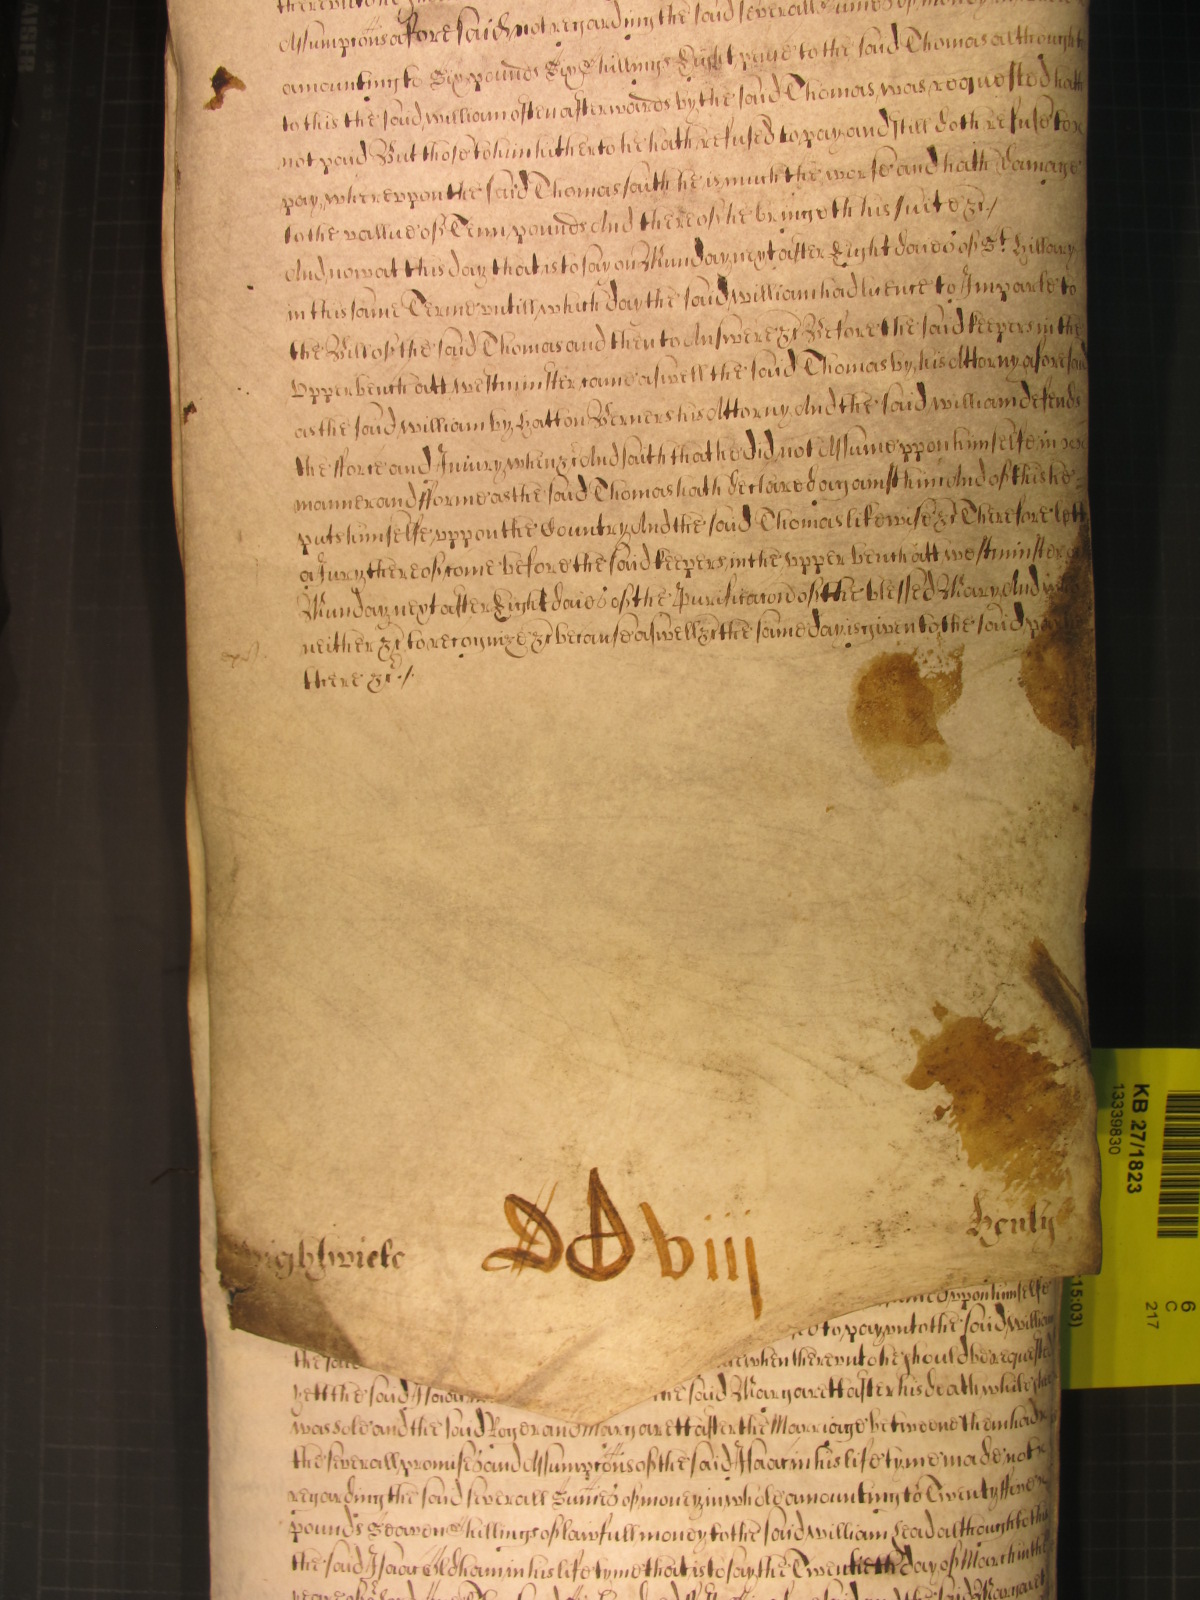 Assumptions aforesaid not regarding the said severall Summes of money
amounting to Six pounds Six shillings Eight pence to the said Thomas although
to this the said William often afterwards by the said Thomas, was requested hath
not paid But those to him hitherto he hath refused to pay and still doth refuse to
pay, whereuppon the said Thomas saith he is much the worse and hath damage
to the vallue of Tenn pounds And thereof he bringeth his suite &c./
And now at this day that is to say on Munday next after Eight daies of St. Hillary
in this same Terme untill which day the said William had licence to Imparle to
the Bill of the said Thomas and then to Answere &c Before the said keepers in the
Upper bench att Westminster came aswell the said Thomas by his Attorny aforesaid
as the said William by Hatton Berners his Attorny And the said William defends
the fforce and Injury when &c And saith that he did not Assume uppon himselfe in
manner and fforme as the said Thomas hath declared against him And of this he
puts himselfe uppon the Country And the said Thomas likewise &c Therefore lett
a Jury thereof come before the said keepers in the upper bench att Westminster
Munday next after Eight daies of the Purificacion of the blessed Mary And
neither &c to recognize &c because aswell &c the same day is given to the said
there &c./
DD viij
Henly
KB 27/1823
13339830
6
C
217
15:03)
uppon himselfe
to pay unto the said William
the said when thereunto he should be requested
yett the said Isaac the said Margarett after his death while she
was sole and the said Roger and Margarett after the Marriage betweene them had
the severall promises and Assumptions of the said Isaac in his life tyme made not
regarding the said severall Summes of money in whole amounting to Twenty ffive
pounds Seaven shillings of lawfull money to the said William Lead although to this
the said Isaac Oldham in his life tyme that is to say the Twentieth day of March in the